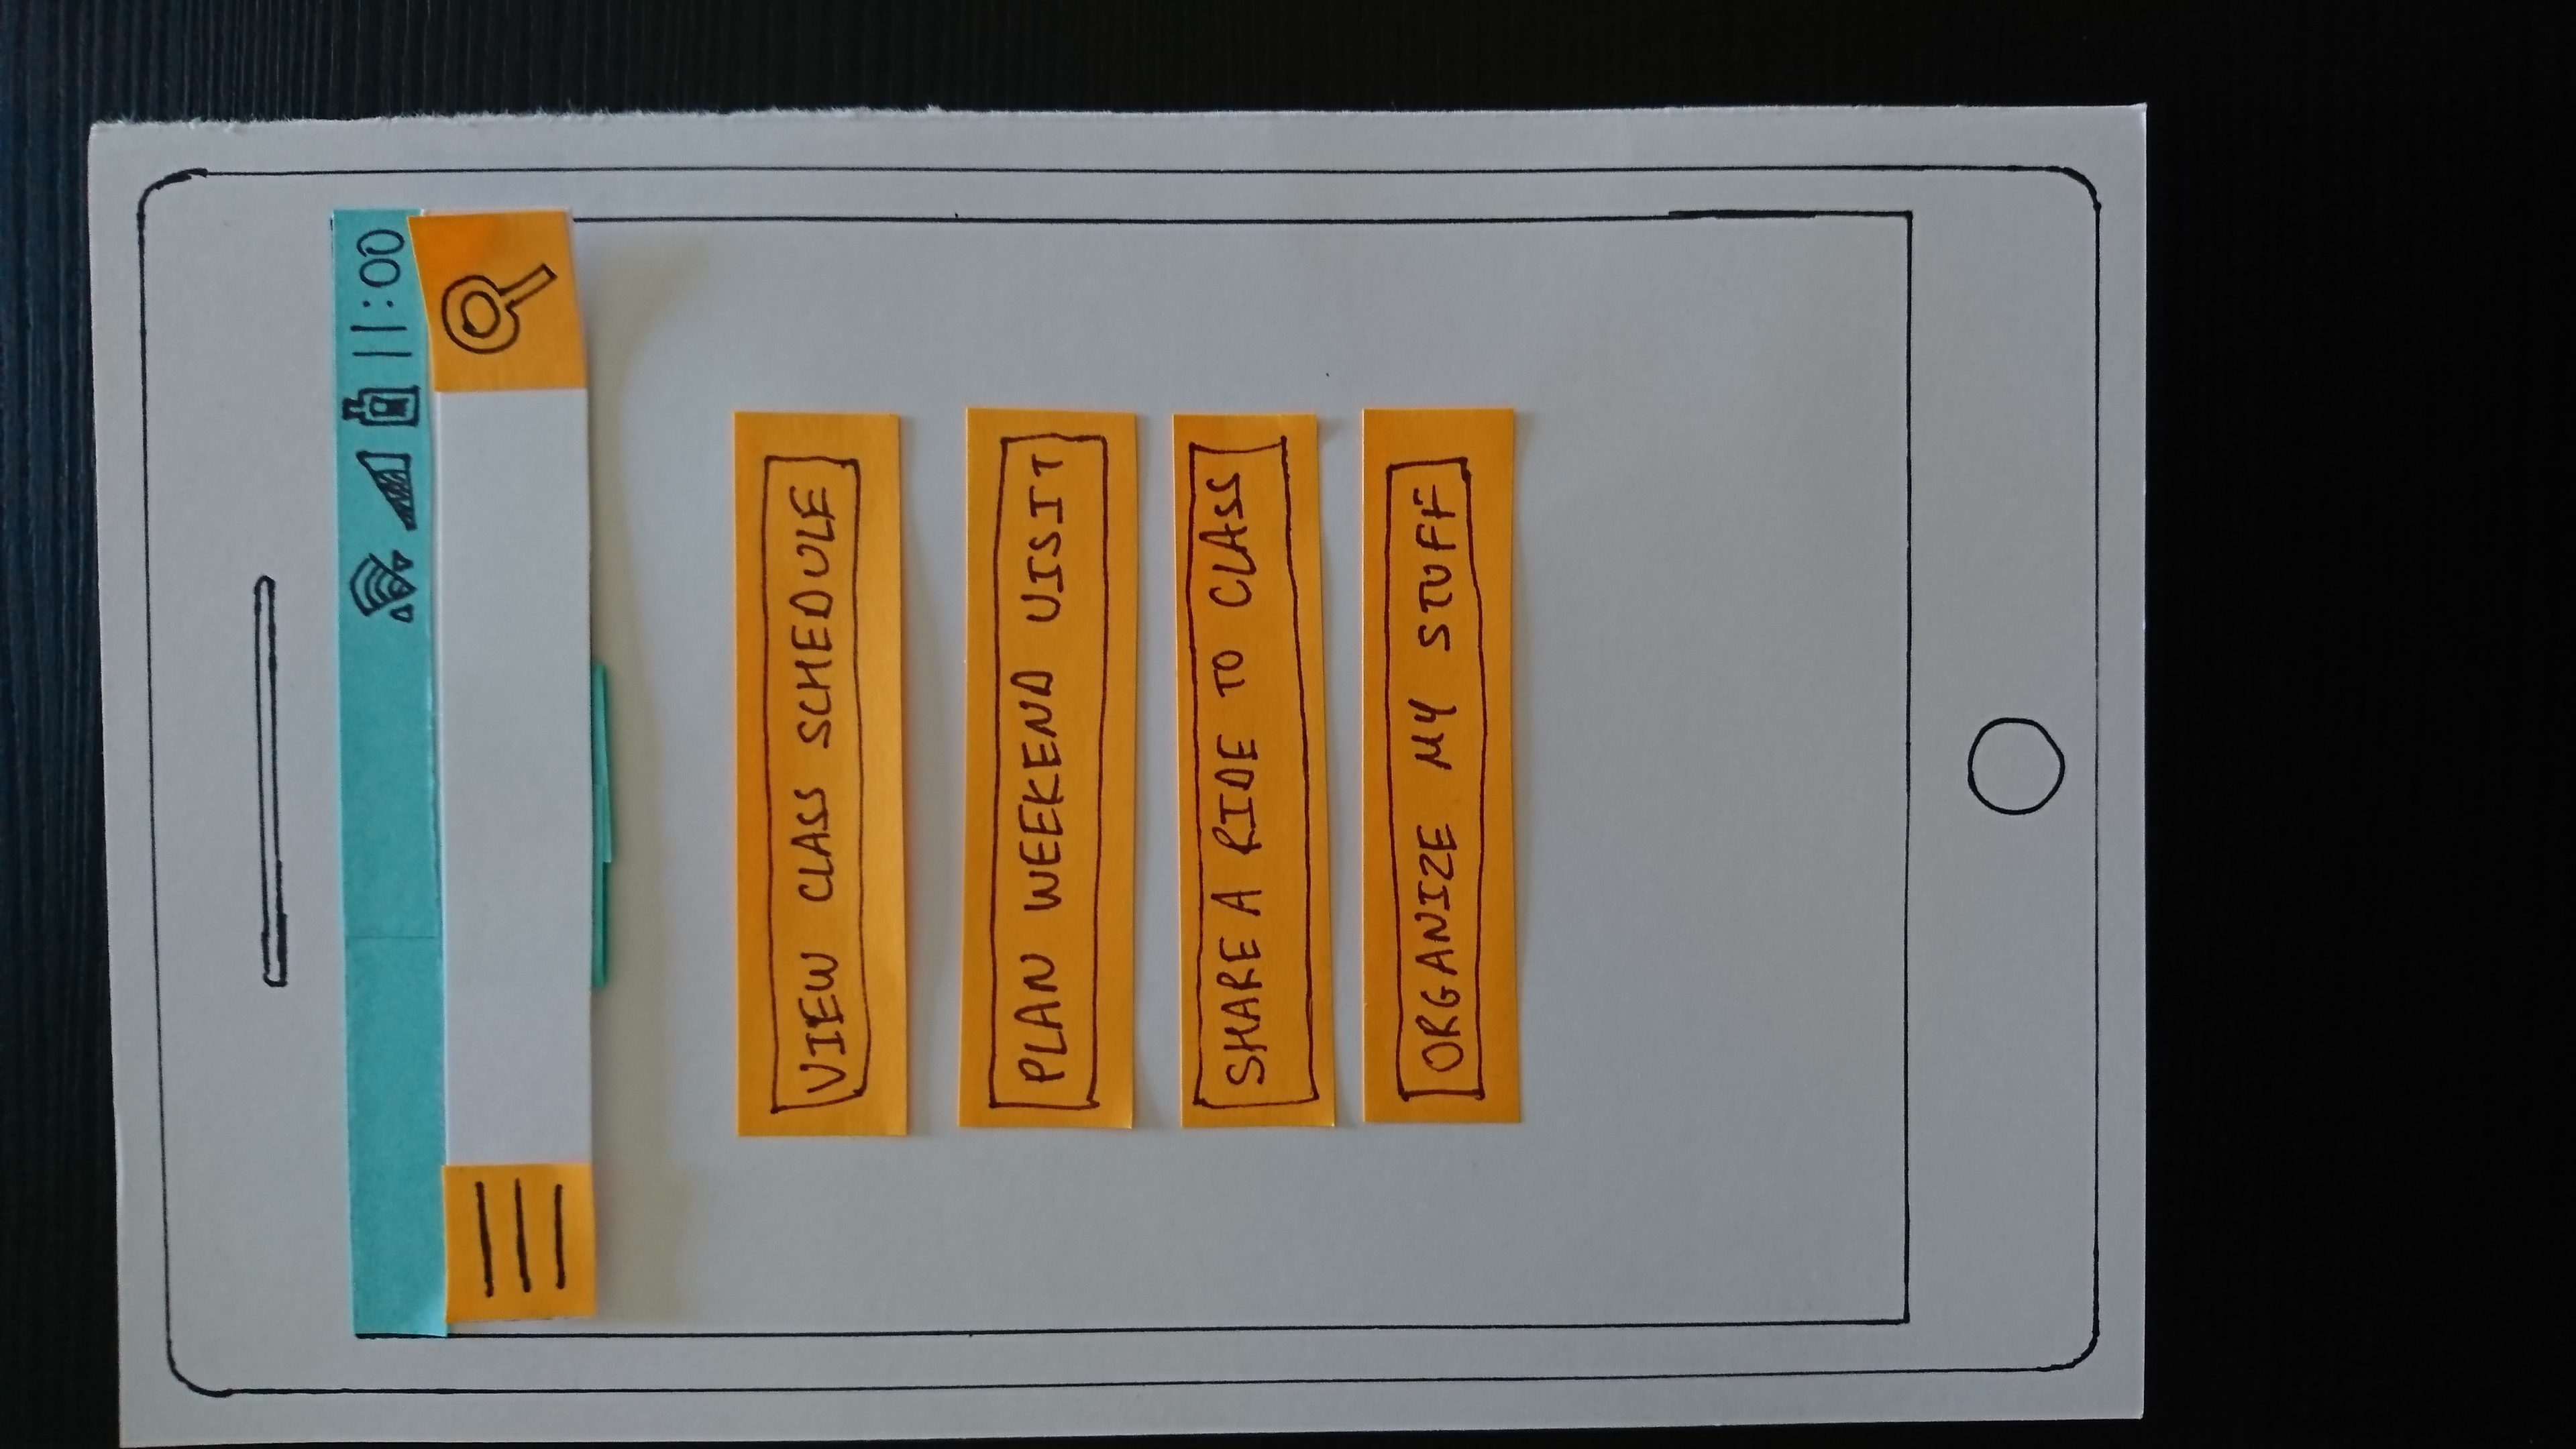 11:00
VIEW CLASS SCHEDULE
PLAN WEEKEND VISIT
SHARE A RIDE TO CLASS
ORGANIZE MY STUFF